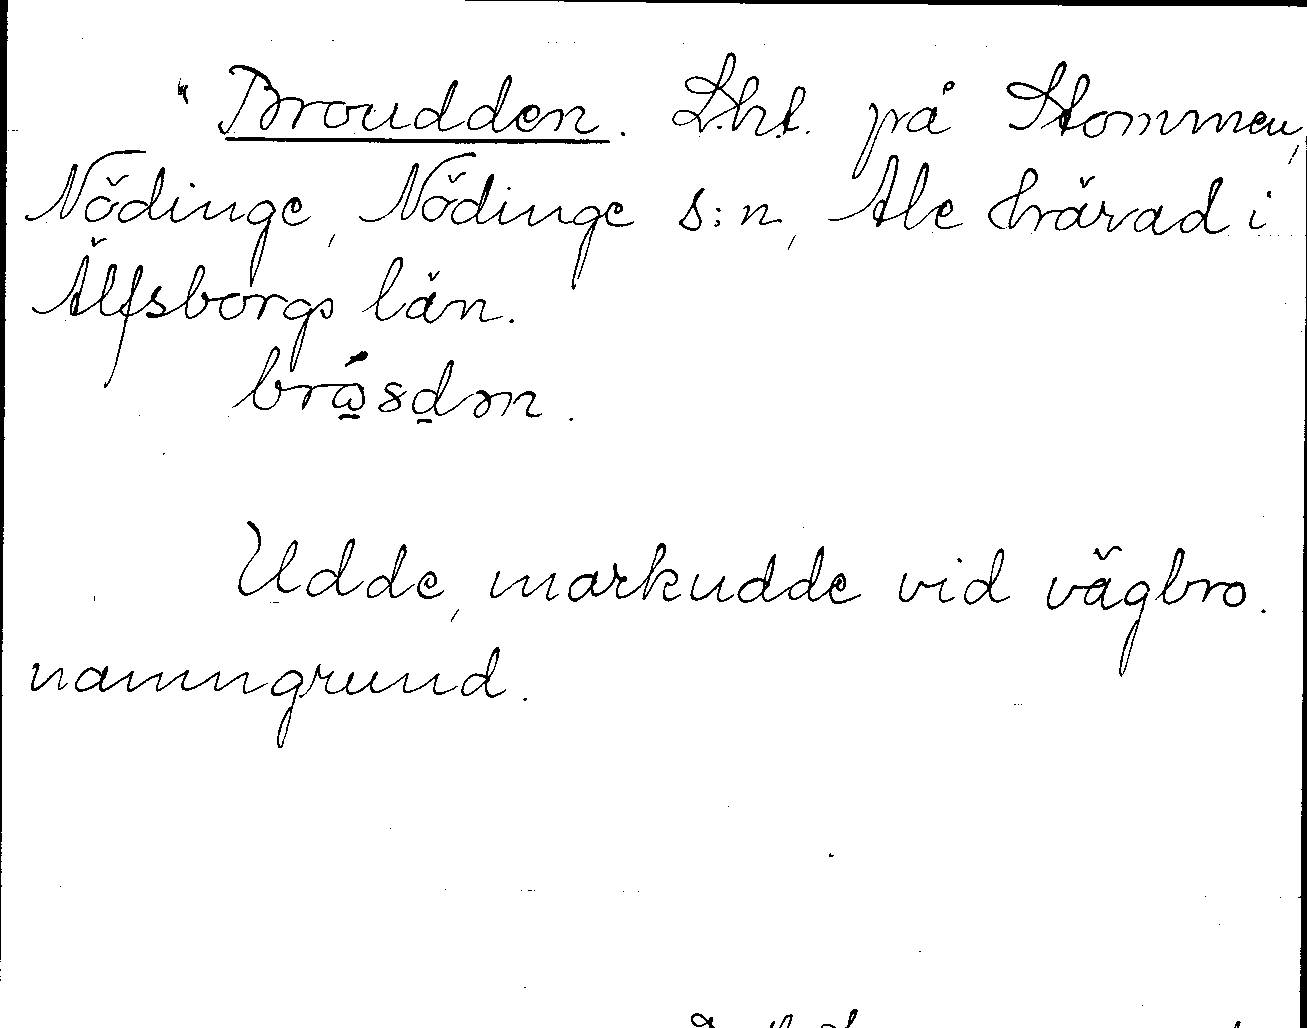 " Broudden. Lht. på Stommen,
Nödinge, Nödinge s:n, Ale härad i
Älfsborgs län.
Udde, markudde vid vägbro.
namngrund.